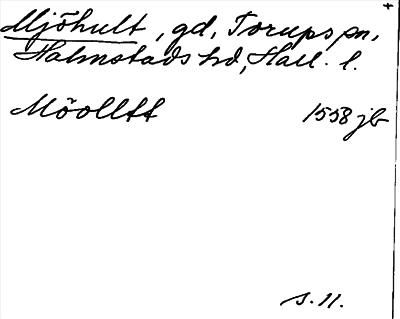 +
Mjöhult, gd, Torups sn,
Halmstads hd, Hall. l.
Möolltt 1558 jb
s. 11.